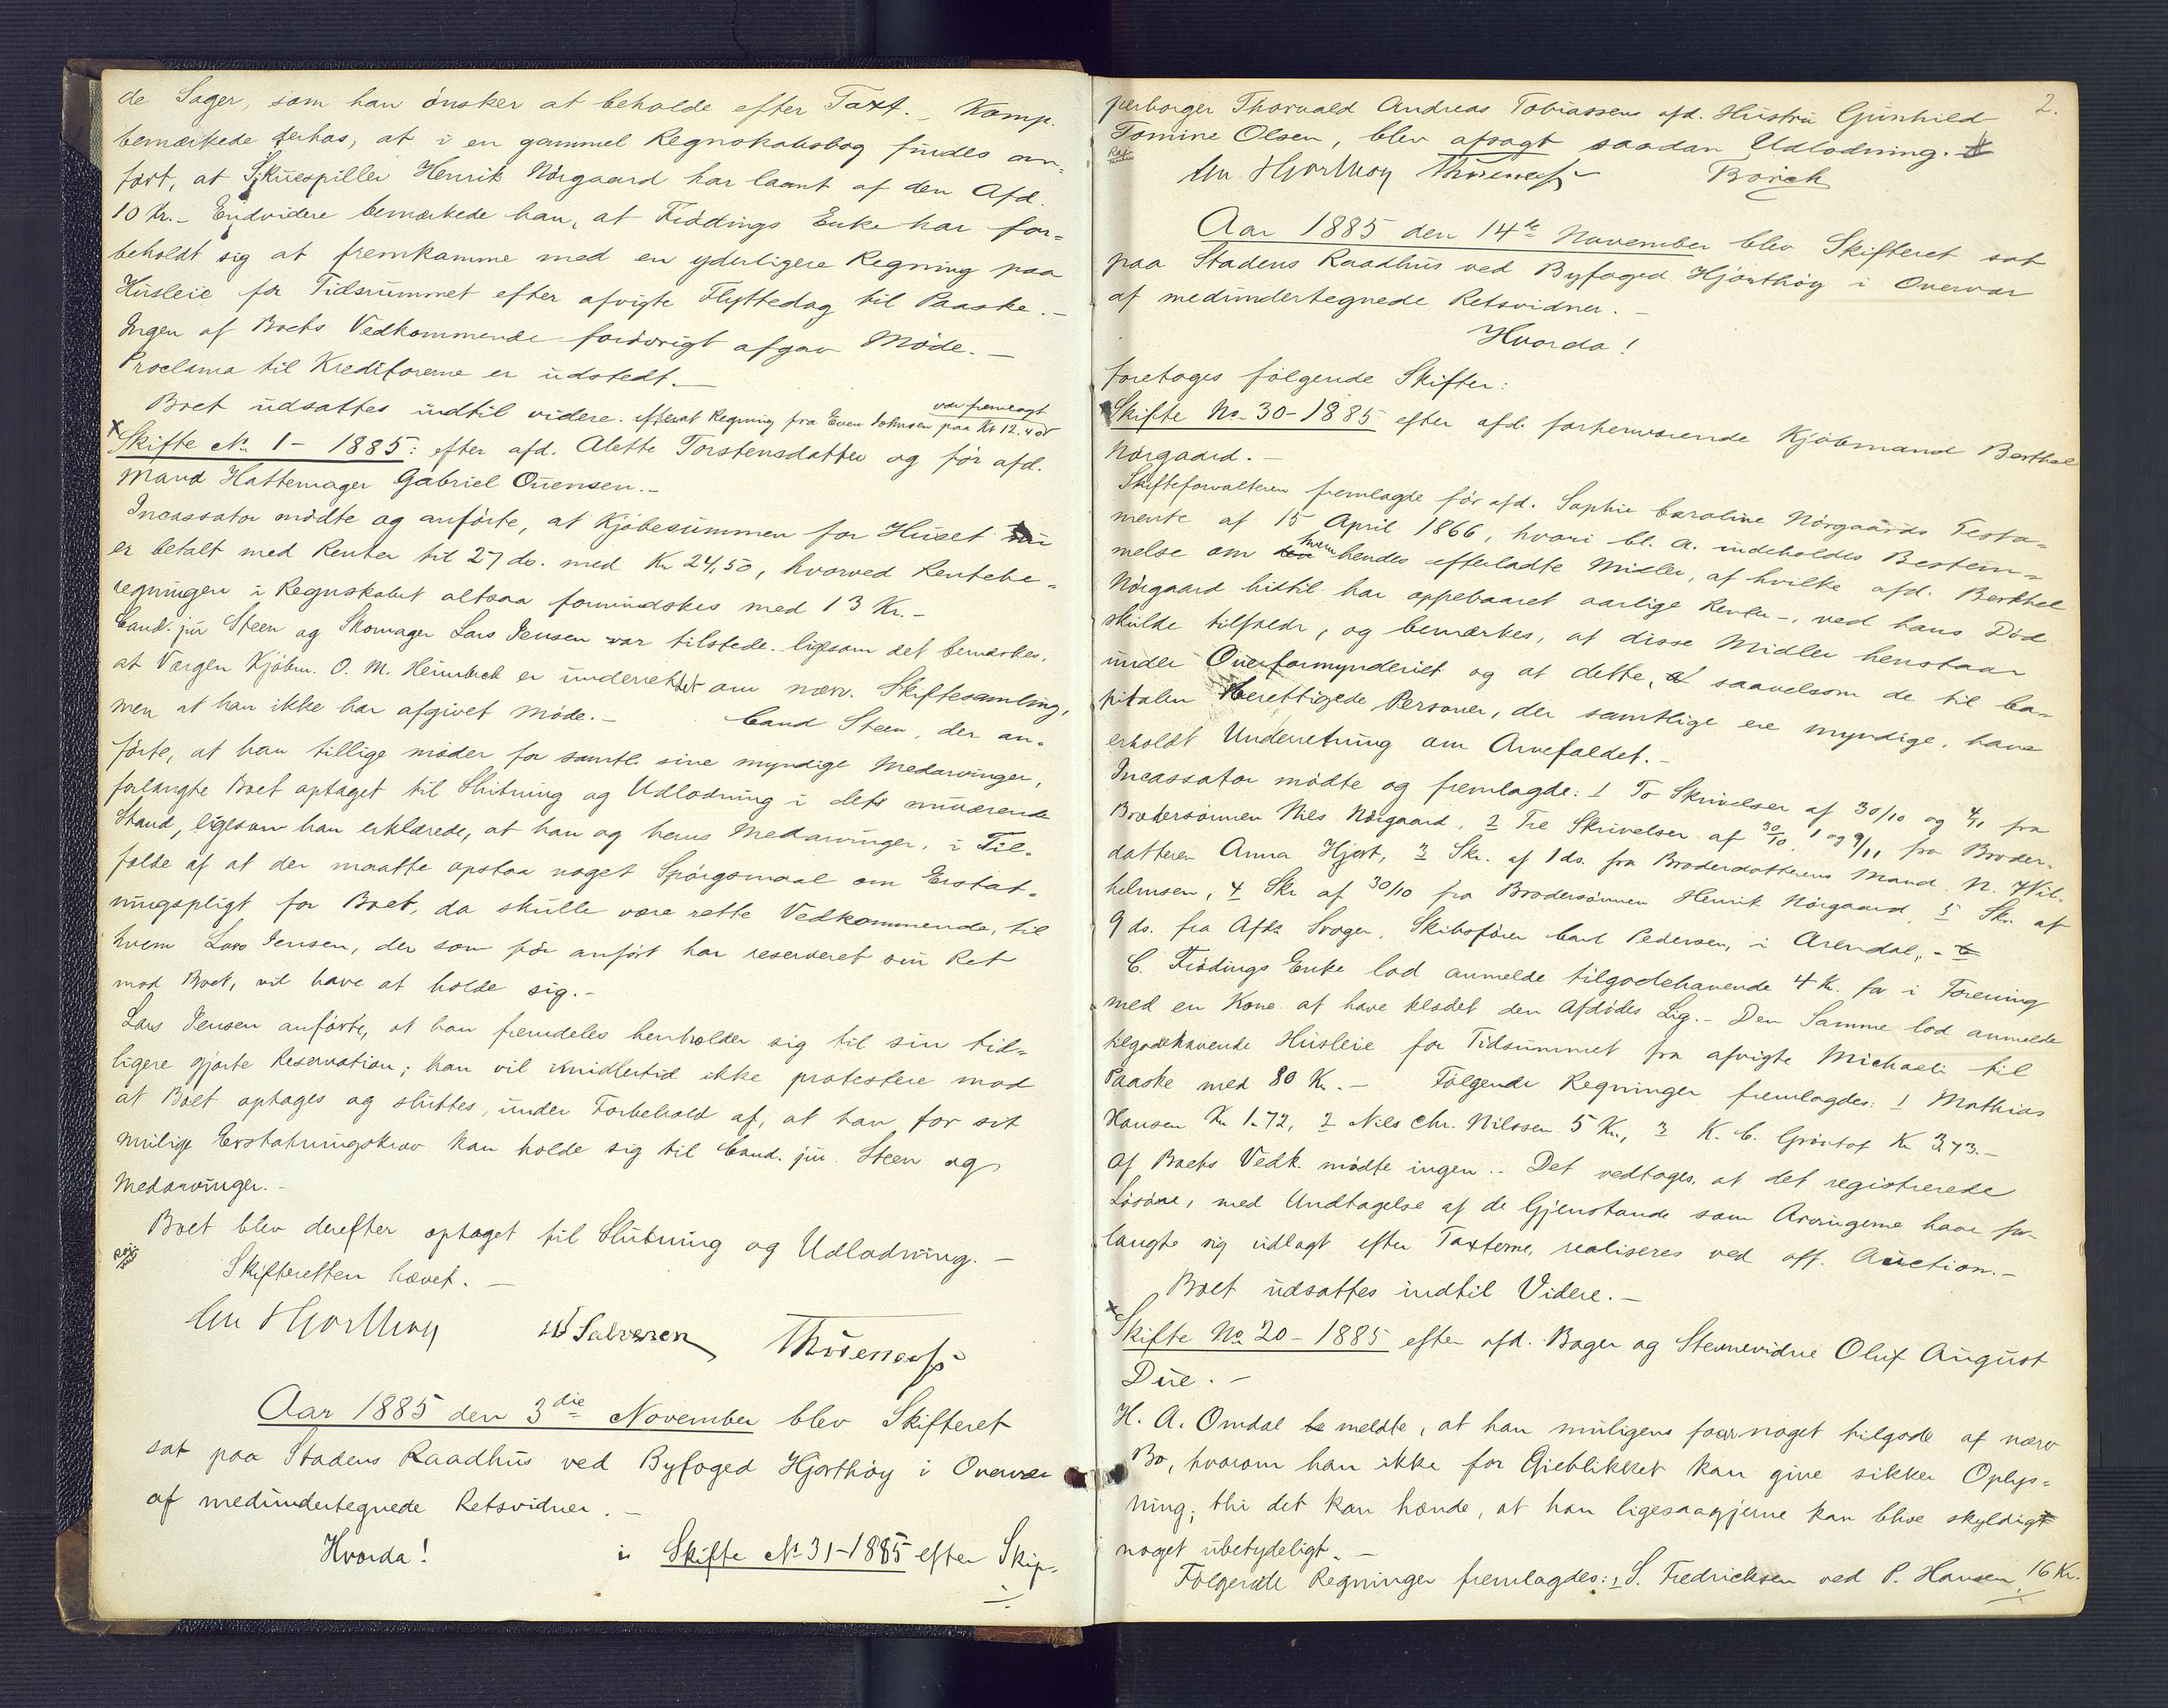 de Sager, som han ønsker at beholde efter Taxt. – Komp.
bemærkede derhos, at i en gammel Regnskabsbog findes an-
ført, at Skuespiller Henrik Nörgaard har laant af den Afd.
10 Kr. – Endvidere bemærkede han, at Födings Enke har for-
beholdt sig at fremkomme med en yderligere Regning paa
Husleie for Tidsrummet efter afvigte Flyttedag til Paaske. –
Ingen af Boets Vedkommende forövrigt afgav Möde. –
Proclama til Kreditorerne er udstedt. –
Boet udsattes indtil videre. efterat Regning fra Even Johnsen paa Kr 12.40 var fremlagt
Skifte No 1 – 1885: efter afd. Alette Torstensdatter og för afd.
Mand Hattemager Gabriel Ouensen. –
Incassator mödte og anförte, at Kjöbesummen for Huset nu
er betalt med Renter til 27 ds. med Kr 24,50, hvorved Rentebe-
regningen i Regnskabet altsaa formindskes med 13 Kr. –
Cand. jur Steen og Skomager Lars Jensen var tilstede. ligesom det bemærkes,
at Værgen Kjöbm. O. M. Heimbeck er underrettet om nærv. Skiftesamling,
men at han ikke har afgivet Möde. – Cand Steen, der an-
förte, at han tillige möder for samtl. sine myndige Medarvinger,
forlangte Boet optaget til Slutning og Udlodning i dets nuværende
Stand, ligesom han erklærede, at han og hans Medarvinger, i Til-
fælde af at der maatte opstaa noget Spörgsmaal om Erstat-
ningspligt for Boet, da skulle være rette Vedkommende, til
hvem Lars Jensen, der som för anfört har reserveret sin Ret
mod Boet, vil have at holde sig. –
Lars Jensen anförte, at han fremdeles henholder sig til sin tid-
ligere gjorte Reservation; han vil imidlertid ikke protestere mod
at Boet optages og sluttes, under Forbehold af, at han for sit
mulige Erstatningskrav kan holde sig til Cand. jur. Steen og
Medarvinger. –
Boet blev derefter optaget til Slutning og Udlodning. –
Skifteretten hævet. –
Chr Hjorthöy Salvesen
Aar 1885 den 3die November blev Skifteret
sat paa Stadens Raadhus ved Byfoged Hjorthöy i Overvær
af medundertegnede Retsvidner. –
Hvorda! i Skifte No 31–1885 efter Skip-
2.
perborger Thorvald Andreas Tobiassens afd. Hustru Gunhild
Tomine Olsen, blev afsagt saadan Udlodning.
Chr Hjorthoy Borch
Aar 1885 den 14de November blev Skifteret sat
paa Stadens Raadhus ved Byfoged Hjorthöy i Overvær
af medundertegnede Retsvidner. –
Hvorda!
foretoges fölgende Skifter:
Skifte No 30–1885 efter afd. forhenværende Kjöbmand Berthel
Nörgaard. –
Skifteforvalteren fremlagde för afd. Sophie Caroline Nörgaards Testa-
mente af 15 April 1866, hvori bl. a. indeholdes Bestem-
melse om hvem hendes efterladte Midler, af hvilke afd. Berthel
Nörgaard hidtil har oppebaaret aarlige Renter –, ved hans Död
skulde tilfalde, og bemærkes, at disse Midler henstaar
under Overformynderiet og at dette, saavelsom de til Ca-
pitalen berettigede Personer, der samtlige ere myndige, have
erholdt Underretning om Arvefaldet. –
Incassator mödte og fremlagde: 1 To Skrivelser af 30/10 og 4/11 fra
Brodersönnen Nils Nörgaard, 2 Tre Skrivelser af 30/10, 1 og 9/11 fra Broder-
datteren Anna Hjort, 3 Skr. af 1 ds. fra Broderdatterens Mand N. Wil-
helmsen, 4 Skr af 30/10 fra Brodersönnen Henrik Nörgaard, 5 Skr. af
9 ds. fra Afds Svoger, Skibsförer Carl Pedersen, i Arendal. –
C. Födings Enke lod anmelde tilgodehavende 4 Kr. for i Forening
med en Kone at have klædet den Afdödes Lig. – Den Samme lod anmelde
tilgodehavende Husleie for Tidsrummet fra afvigte Michaeli til
Paaske med 80 Kr. – Fölgende Regninger fremlagdes: 1 Mathias
Hansen Kr 1.72, 2 Nils Chr. Nilssen 5 Kr., 3 K. C. Gröstaf Kr 3,73. –
Af Boets Vedk. mödte ingen. – Det vedtoges, at det registrerede
Lösöre, med Undtagelse af de Gjenstande som Arvingerne have for-
langte sig udlagt efter Taxterne, realiseres ved off. Auction. –
Boet udsattes indtil Videre. –
Skifte No 20–1885 efter afd. Bager og Stevnevidne Oluf August
Due. –
H. A. Omdal meldte, at han muligens faar noget tilgode af nærv
Bo, hvorom han ikke for Öieblikket kan give sikker Oplys-
ning; thi det kan hænde, at han ligesaagjerne kan blive skyldig
noget ubetydeligt. –
Fölgende Regninger fremlagdes: 1 S. Fredriksen ved P. Hansen 16 Kr.